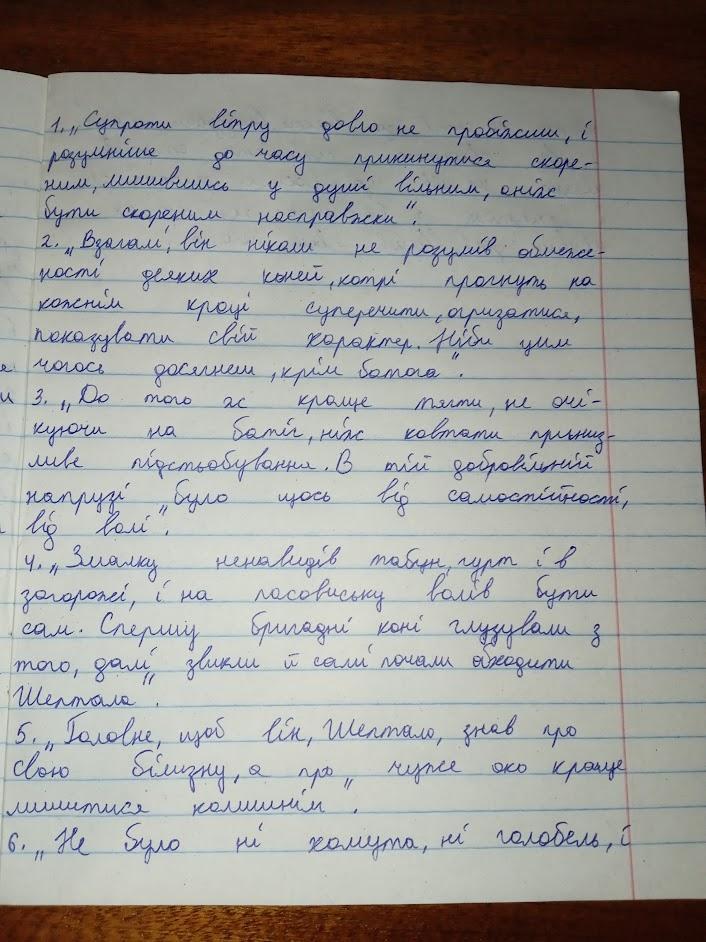 1. „Супроти вітру довго не пробіжиш, і
розумніше до часу прикинутися скоре-
ним, лишившись у душі вільним, аніж
бути скореним насправжки".
2. „Взагалі, він ніколи не розумів обмеже-
ності деяких коней, котрі прагнуть на
кожнім кроці суперечити, огризатися,
показувати свій характер. Ніби цим
чогось досягнеш, крім батога".
3. „До того ж краще тягти, не очі-
куючи на батіг, ніж ковтати приниз-
ливе підстьобування. В тій добровільній
напрузі було щось від самостійності,
від волі".
4. „Змалку ненавидів табун, гурт і в
загорожі, і на пасовиську волів бути
сам. Спершу бригадні коні глузували з
того, далі звикли й самі почали обходити
Шептала".
5. „Головне, щоб він, Шептало, знав про
свою білизну, а про чуже око краще
лишитися колишнім".
6. „Не було ні хомута, ні голобель, і